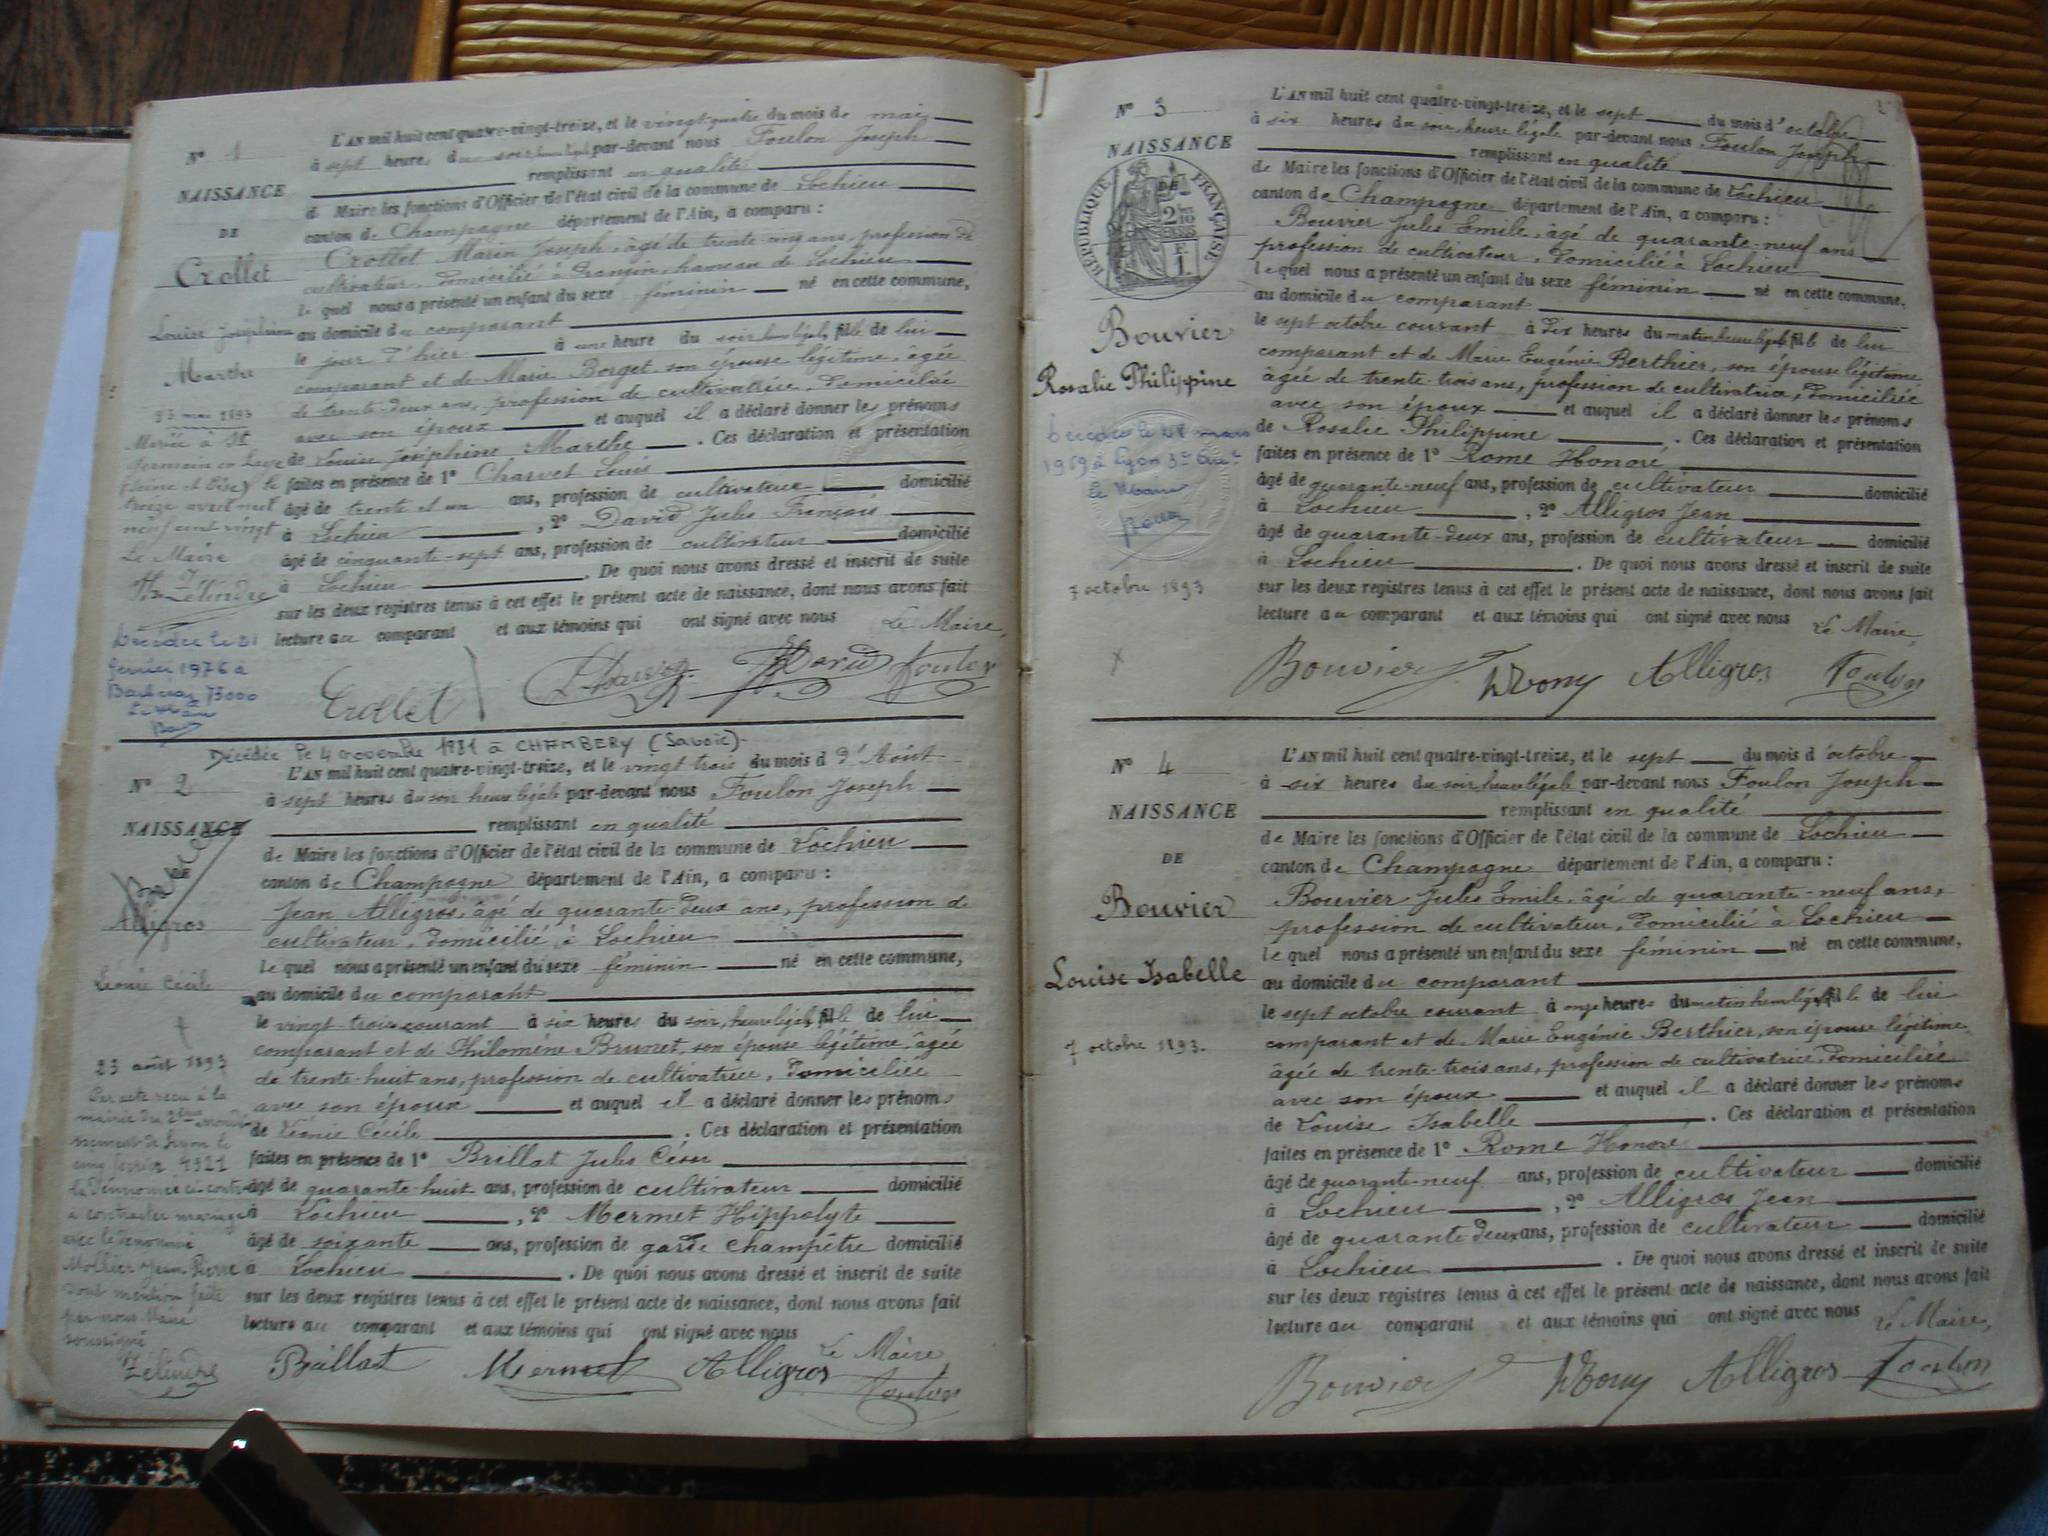 N° 1
NAISSANCE
DE
Crollet
Louise Joséphine
Marthe
23 mai 1893
Mariée à St
Germain en Laye
(Seine et Oise) le
treize avril mil
neuf cent vingt
Le Maire
Zélindre
Décédée le 21
février 1976 à
73000
L'AN mil huit cent quatre-vingt-treize, et le vingt-quatre du mois de mai
à sept heures du soir heure légale par-devant nous Foulon Joseph
remplissant en qualité
d Maire les fonctions d'Officier de l'état civil de la commune de Lochieu
canton de Champagne département de l'Ain, a comparu :
Crollet Marin Joseph, âgé de trente-cinq ans, profession de
cultivateur, domicilié à Brangin, hameau de Lochieu
le quel nous a présenté un enfant du sexe féminin né en cette commune,
au domicile du comparant
le jour d'hier à une heure du soir heure légale, fille de lui
comparant et de Marie Borget son épouse légitime, âgée
de trente-deux ans, profession de cultivatrice, domiciliée
avec son époux et auquel il a déclaré donner les prénoms
de Louise Joséphine Marthe . Ces déclaration et présentation
faites en présence de 1° Charvet Louis
âgé de trente et un ans, profession de cultivateur domicilié
à Lochieu , 2° David Jules François
âgé de cinquante-sept ans, profession de cultivateur domicilié
à Lochieu . De quoi nous avons dressé et inscrit de suite
sur les deux registres tenus à cet effet le présent acte de naissance, dont nous avons fait
lecture au comparant et aux témoins qui ont signé avec nous Le Maire,
Crollet Charvet David Foulon
Décédée le 4 novembre 1981 à CHAMBERY (Savoie)
N° 2
NAISSANCE
Alligros
Léonie Cécile
23 août 1893
Par acte reçu à la
mairie du 2ème arrondis
sement de Lyon le
cinq février 1921
la dénommée ci-contre
a contracter mariage
avec le dénommé
Mollier Jean Pierre
dont mention faite
par nous Maire
soussigné
Zélindre
L'AN mil huit cent quatre-vingt-treize, et le vingt trois du mois d d'Août
à sept heures du soir heure légale par-devant nous Foulon Joseph
remplissant en qualité
de Maire les fonctions d'Officier de l'état civil de la commune de Lochieu
canton de Champagne département de l'Ain, a comparu :
Jean Alligros, âgé de quarante-deux ans, profession de
cultivateur, domicilié à Lochieu
le quel nous a présenté un enfant du sexe féminin né en cette commune,
au domicile du comparant
le vingt-trois courant à six heures du soir, heure légale, fille de lui
comparant et de Philomène Brunet, son épouse légitime, âgée
de trente-huit ans, profession de cultivatrice, domiciliée
avec son époux et auquel il a déclaré donner les prénoms
de Léonie Cécile . Ces déclaration et présentation
faites en présence de 1° Brillat Jules César
âgé de quarante-huit ans, profession de cultivateur domicilié
à Lochieu , 2° Mermet Hippolyte
âgé de soixante ans, profession de garde champêtre domicilié
à Lochieu . De quoi nous avons dressé et inscrit de suite
sur les deux registres tenus à cet effet le présent acte de naissance, dont nous avons fait
lecture au comparant et aux témoins qui ont signé avec nous Le Maire
Brillat Mermet Alligros Foulon
N° 3
NAISSANCE
DE
RÉPUBLIQUE FRANÇAISE
Bouvier
Rosalie Philippine
Décédée le 28 mars
1969 à Lyon 3e
Le Maire
7 octobre 1893
L'AN mil huit cent quatre-vingt-treize, et le sept du mois d'octobre
à six heures du soir, heure légale par-devant nous Foulon Joseph
remplissant en qualité
de Maire les fonctions d'Officier de l'état civil de la commune de Lochieu
canton de Champagne département de l'Ain, a comparu :
Bouvier Jules Emile, âgé de quarante-neuf ans
profession de cultivateur, domicilié à Lochieu
le quel nous a présenté un enfant du sexe féminin né en cette commune,
au domicile du comparant
le sept octobre courant à dix heures du matin, heure légale, fille de lui
comparant et de Marie Eugénie Berthier, son épouse légitime,
âgée de trente-trois ans, profession de cultivatrice, domiciliée
avec son époux et auquel il a déclaré donner les prénoms
de Rosalie Philippine . Ces déclaration et présentation
faites en présence de 1° Rome Honoré
âgé de quarante-neuf ans, profession de cultivateur domicilié
à Lochieu , 2° Alligros Jean
âgé de quarante-deux ans, profession de cultivateur domicilié
à Lochieu . De quoi nous avons dressé et inscrit de suite
sur les deux registres tenus à cet effet le présent acte de naissance, dont nous avons fait
lecture au comparant et aux témoins qui ont signé avec nous Le Maire,
Bouvier Alligros Foulon
N° 4
NAISSANCE
DE
Bouvier
Louise Isabelle
7 octobre 1893.
L'AN mil huit cent quatre-vingt-treize, et le sept du mois d'octobre
à six heures du soir, heure légale par-devant nous Foulon Joseph
remplissant en qualité
de Maire les fonctions d'Officier de l'état civil de la commune de Lochieu
canton de Champagne département de l'Ain, a comparu :
Bouvier Jules Emile, âgé de quarante-neuf ans,
profession de cultivateur, domicilié à Lochieu
le quel nous a présenté un enfant du sexe féminin né en cette commune,
au domicile du comparant
le sept octobre courant à onze heures du matin heure légale, fille de lui
comparant et de Marie Eugénie Berthier, son épouse légitime
âgée de trente-trois ans, profession de cultivatrice, domiciliée
avec son époux et auquel il a déclaré donner les prénoms
de Louise Isabelle . Ces déclaration et présentation
faites en présence de 1° Rome Honoré
âgé de quarante-neuf ans, profession de cultivateur domicilié
à Lochieu , 2° Alligros Jean
âgé de quarante deux ans, profession de cultivateur domicilié
à Lochieu . De quoi nous avons dressé et inscrit de suite
sur les deux registres tenus à cet effet le présent acte de naissance, dont nous avons fait
lecture au comparant et aux témoins qui ont signé avec nous Le Maire,
Bouvier Alligros Foulon